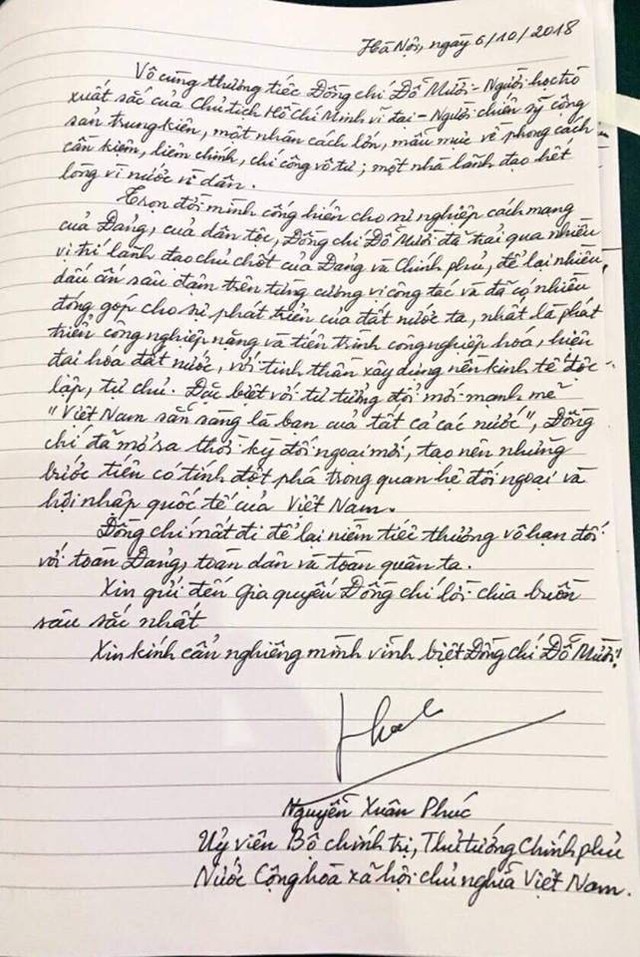 Hà Nội, ngày 6/10/2018
Vô cùng thương tiếc Đồng chí Đỗ Mười - Người học trò
xuất sắc của Chủ tịch Hồ Chí Minh vĩ đại - Người chiến sỹ cộng
sản trung kiên, một nhân cách lớn, mẫu mực về phong cách
cần kiệm, liêm chính, chí công vô tư; một nhà lãnh đạo hết
lòng vì nước vì dân.
Trọn đời mình cống hiến cho sự nghiệp cách mạng
của Đảng, của dân tộc, Đồng chí Đỗ Mười đã trải qua nhiều
vị trí lãnh đạo chủ chốt của Đảng và Chính phủ, để lại nhiều
dấu ấn sâu đậm trên từng cương vị công tác và đã có nhiều
đóng góp cho sự phát triển của đất nước ta, nhất là phát
triển công nghiệp nặng và tiến trình công nghiệp hoá, hiện
đại hóa đất nước, với tinh thần xây dựng nền kinh tế độc
lập, tự chủ. Đặc biệt với tư tưởng đổi mới mạnh mẽ
"Việt Nam sẵn sàng là bạn của tất cả các nước", Đồng
chí đã mở ra thời kỳ đối ngoại mới, tạo nên những
bước tiến có tính đột phá trong quan hệ đối ngoại và
hội nhập quốc tế của Việt Nam.
Đồng chí mất đi để lại niềm tiếc thương vô hạn đối
với toàn Đảng, toàn dân và toàn quân ta.
Xin gửi đến gia quyến Đồng chí lời chia buồn
sâu sắc nhất
Xin kính cẩn nghiêng mình vĩnh biệt Đồng chí Đỗ Mười!
Nguyễn Xuân Phúc
Uỷ viên Bộ chính trị, Thủ tướng Chính phủ
Nước Cộng hòa xã hội chủ nghĩa Việt Nam.